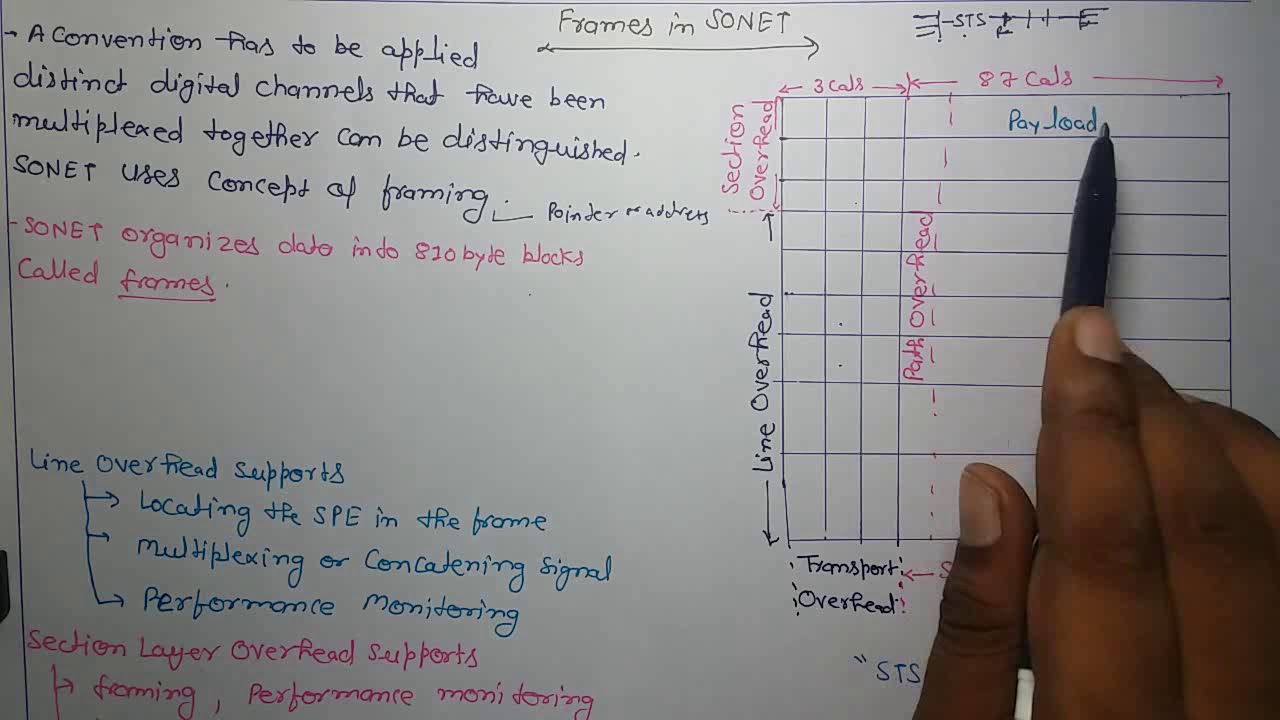 Frames in SONET
- A Convention has to be applied
distinct digital channels that have been
multiplexed together can be distinguished.
SONET uses Concept of framing.
Pointer or address
- SONET organizes data into 810 byte blocks
Called frames.
Line Overhead Supports
Locating the SPE in the frame
Multiplexing or Concatening Signal
Performance Monitoring
Section Layer Overhead Supports
framing, Performance monitoring
STS
3 Cals
87 Cals
Section
Overhead
Payload
Path Overhead
Line Overhead
Transport
Overhead
S
"STS